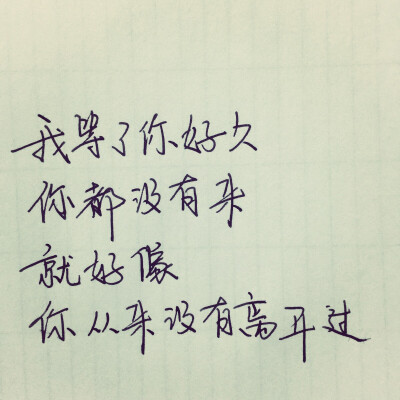 我等了你好久
你都没有来
就好像
你从来没有离开过